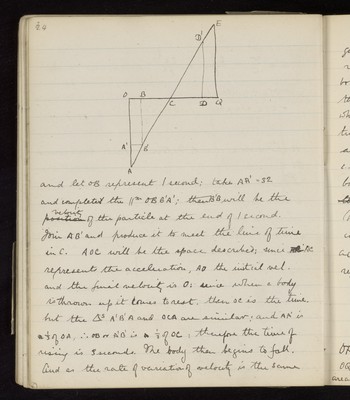 24
E
D'
O B
C D Q
A' B'
A
and let OB represent 1 second; take AA' = 32
and completed the ||gm OBB'A'; then BB' will be the
velocity
position of the particle at the end of 1 second.
Join AB' and produce it to meet the line of time
in C. AOC will be the space described; since
represents the acceleration, AO the initial vel.
and the final velocity is O: since when a body
is thrown up it comes to rest, then OC is the time
but the Δs A'B'A and OCA are similar; and AA' is
a ⅓ of OA, ∴ OB or A'B' is a ⅓ of OC; therefore the time of
rising is 3 seconds. The body then begins to fall.
And as the rate of variation of velocity is the same